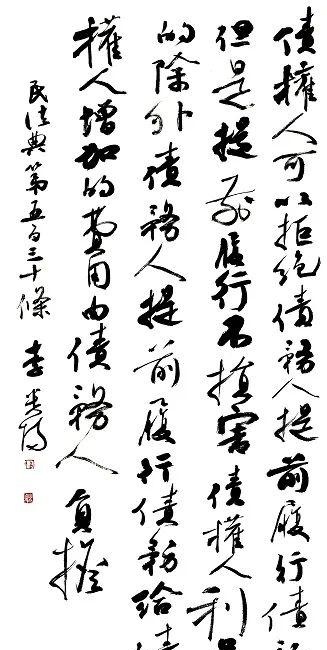 債權人可以拒絕債務人提前履行債
但是提前履行不損害債權人利
的除外債務人提前履行債務給
權人增加的費用由債務人負擔
民法典第五百三十條 李